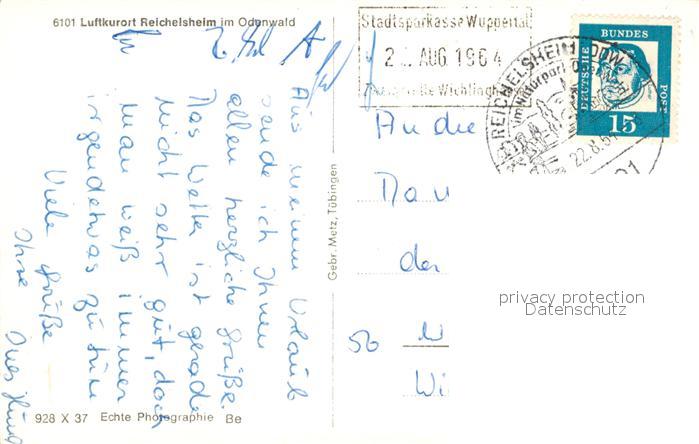 6101 Luftkurort Reichelsheim im Odenwald
Stadtsparkasse Wuppertal
AUG. 1964
REICHELSHEIM ODW
22.8.
DEUTSCHE BUNDESPOST
15
Aus meinem Urlaub
sende ich Ihnen
allen herzliche Grüße.
Das Wetter ist gerade
nicht sehr gut, doch
man weiß immer
irgendetwas zu tun
Viele Grüße
Ihre
An die
der
56
Wi
Gebr. Metz, Tübingen
privacy protection
Datenschutz
928 X 37 Echte Photographie Be